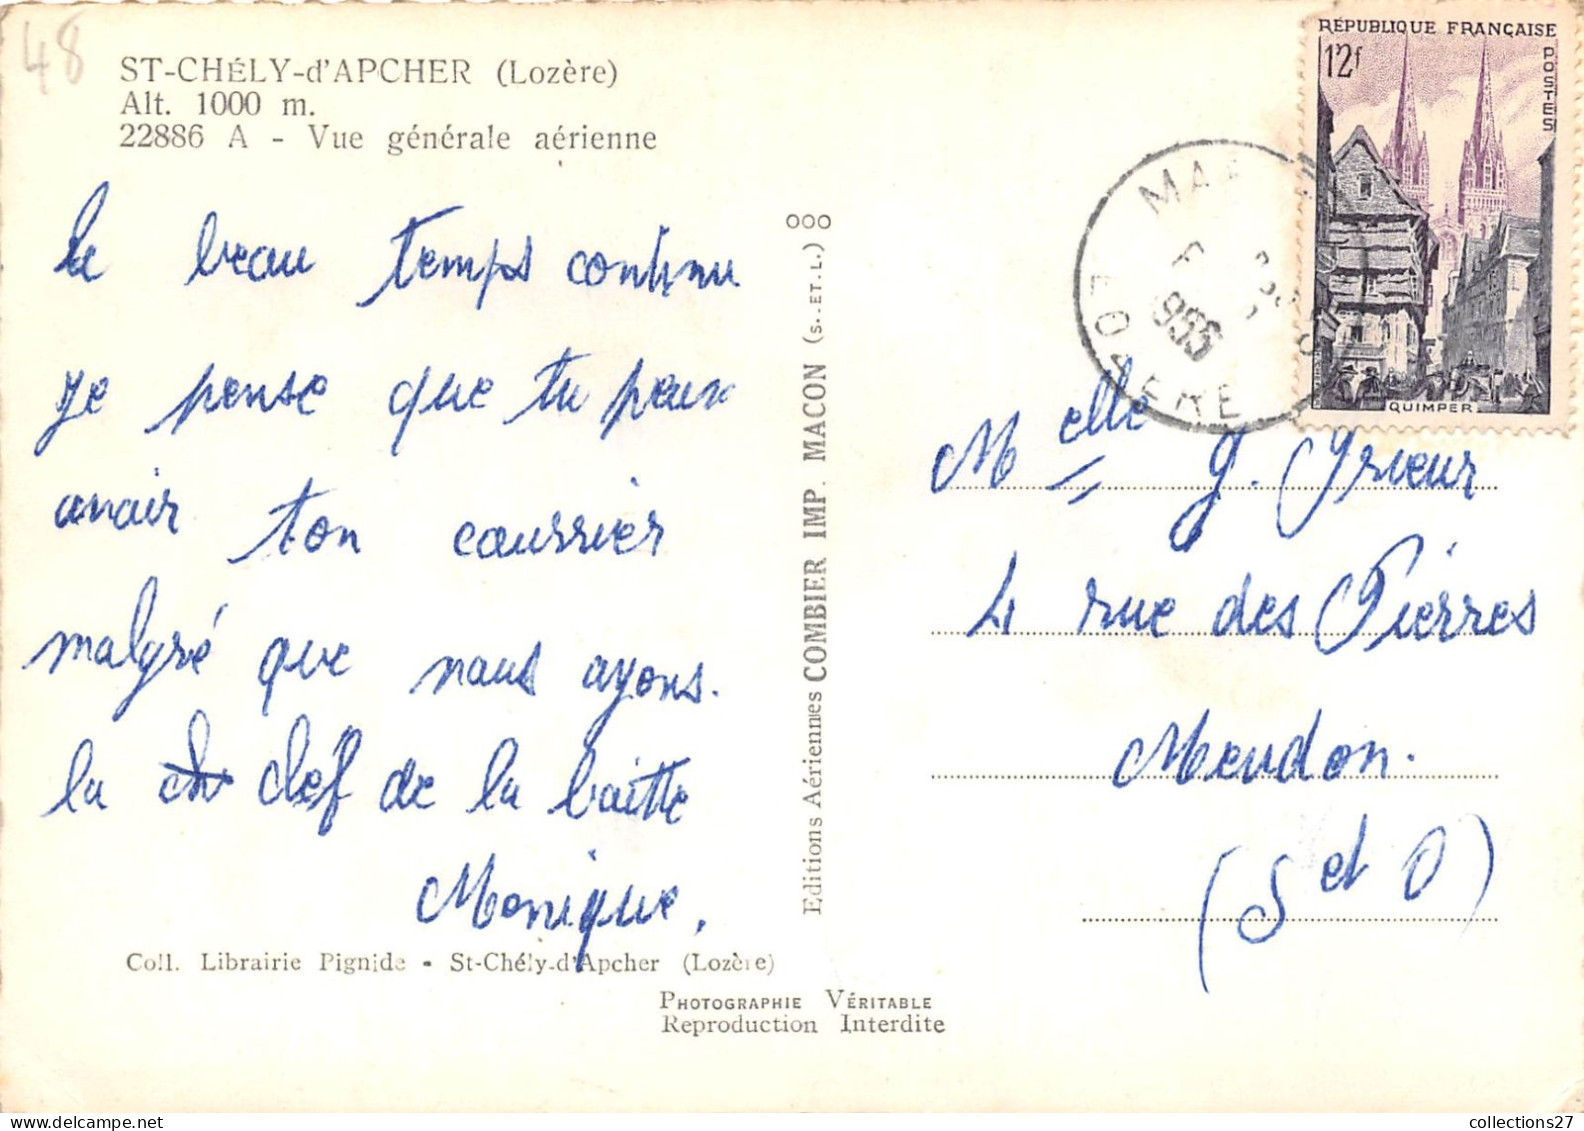 48
ST-CHÉLY-d'APCHER (Lozère)
Alt. 1000 m.
22886 A - Vue générale aérienne
le beau temps continu
je pense que tu peux
avoir ton courrier
malgré que nous ayons.
la clef de la boitte
Monique.
Coll. Librairie Pignide - St-Chély-d'Apcher (Lozère)
PHOTOGRAPHIE VÉRITABLE
Reproduction Interdite
Editions Aériennes COMBIER IMP. MACON (S.-ET.L.)
RÉPUBLIQUE FRANÇAISE
12f
POSTES
QUIMPER
1955
LOZERE
Melle G. Grieur
4 rue des Pierres
Meudon.
(S et O)
collections27